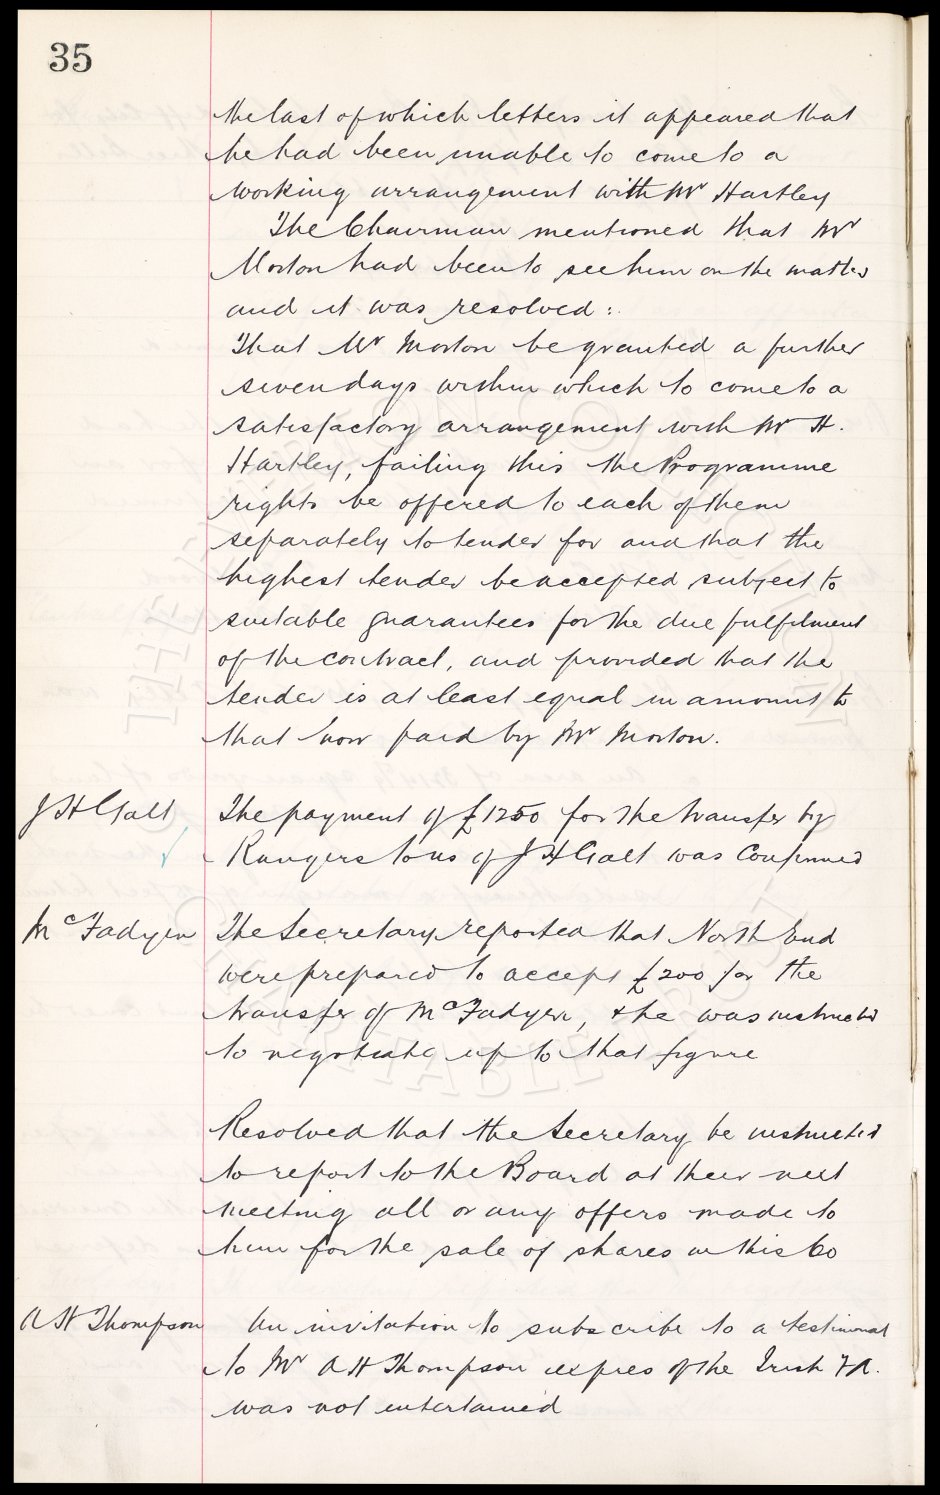 35
the last of which letters it appeared that
he had been unable to come to a
working arrangement with Mr Hartley
The Chairman mentioned that Mr
Morton had been to see him on the matter
and it was resolved:
That Mr Morton be granted a further
seven days within which to come to a
satisfactory arrangement with Mr H.
Hartley, failing this the Programme
rights be offered to each of them
separately to tender for and that the
highest tender be accepted subject to
suitable guarantees for the due fulfilment
of the contract, and provided that the
tender is at least equal in amount to
that now paid by Mr Morton.
J H Galt
The payment of £1250 for the transfer by
Rangers to us of J H Galt was Confirmed
McFadyen
The Secretary reported that North End
were prepared to accept £200 for the
transfer of McFadyen, & he was instructed
to negotiate up to that figure
Resolved that the Secretary be instructed
to report to the Board at their next
meeting all or any offers made to
him for the sale of shares in this Co
A H Thompson
An invitation to subscribe to a testimonial
to Mr A H Thompson expres of the Irish F A.
was not entertained